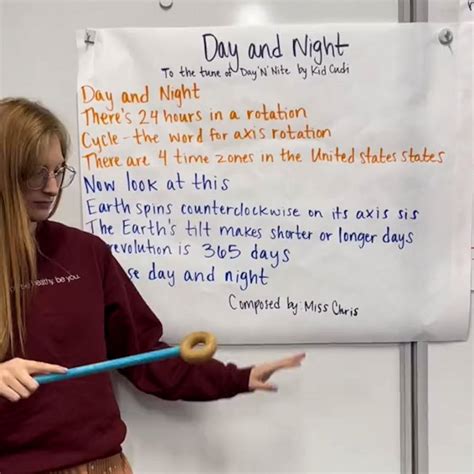 Day and Night
To the tune of Day 'N' Nite by Kid Cudi
Day and Night
There's 24 hours in a rotation
Cycle - the word for axis rotation
There are 4 time zones in the United states states
Now look at this
Earth spins counterclockwise on its axis sis
The Earth's tilt makes shorter or longer days
revolution is 365 days
se day and night
Composed by: Miss Chris
be you.